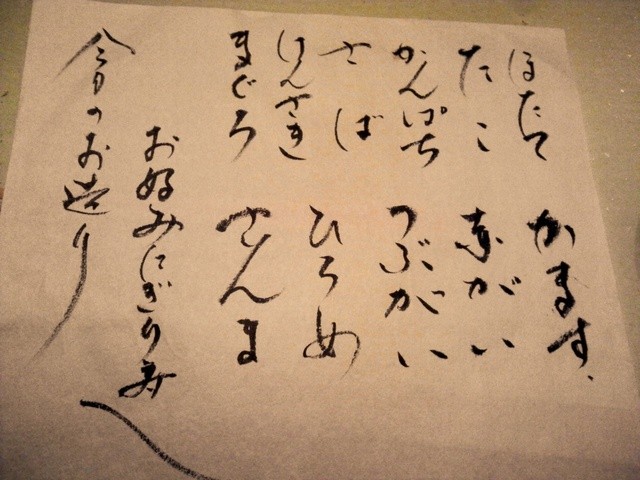 ほたて かます
たこ 赤がい
かんぱち つぶがい
さば ひらめ
けんさき
まぐろ さんま
お好みにぎり寿し
今日のお造り